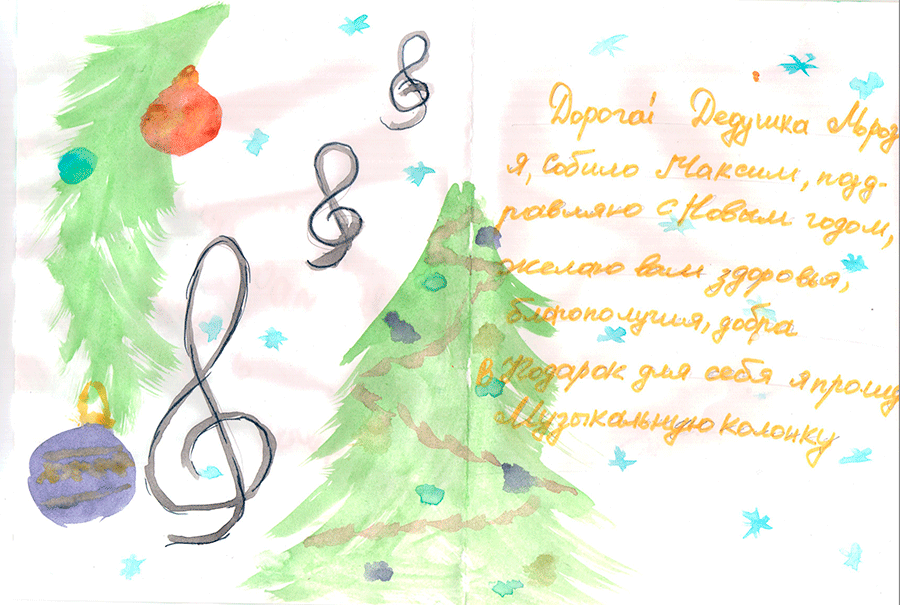 Дорогаi Дедушка Мороз
я, Собило Максим, позд-
равляю с Новым годом,
желаю вам здоровья,
благополучия, добра
в Подарок для себя я прошу
Музыкальную колонку